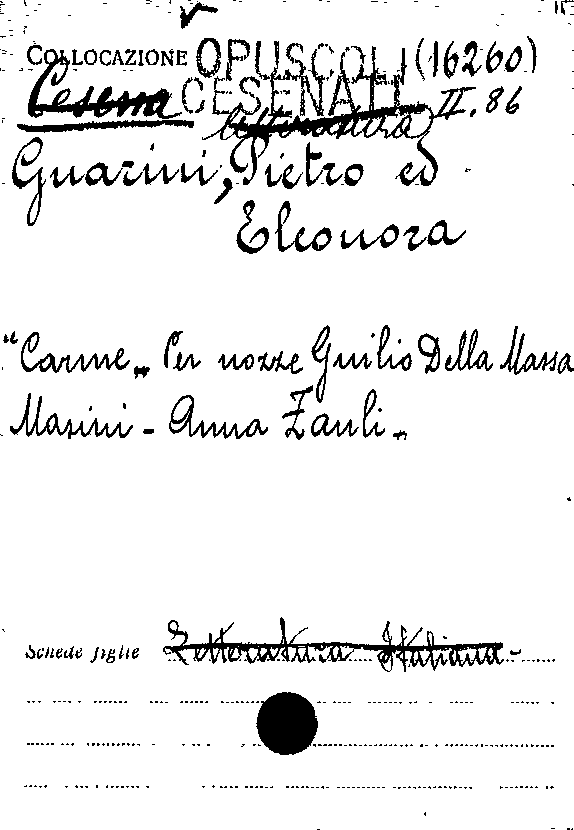 COLLOCAZIONE OPUSCOLI (16260)
Cesena CESENATI II. 86
letteratura)
Guarini, Pietro ed
Eleonora
"Carme„ Per nozze Guilio Della Massa
Masini - Anna Zauli.
Schede figlie Letteratura Italiana-